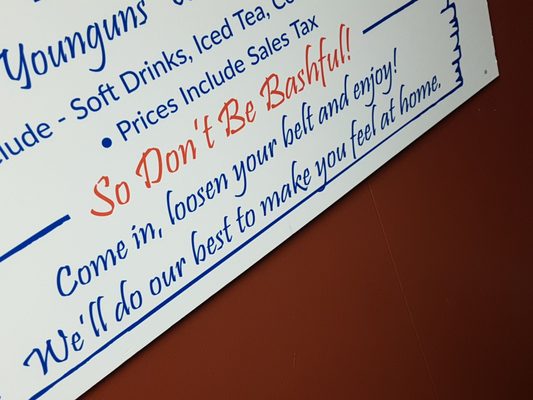 Younguns
- Soft Drinks, Iced Tea,
• Prices Include Sales Tax
So Don't Be Bashful!
Come in, loosen your belt and enjoy!
We'll do our best to make you feel at home.